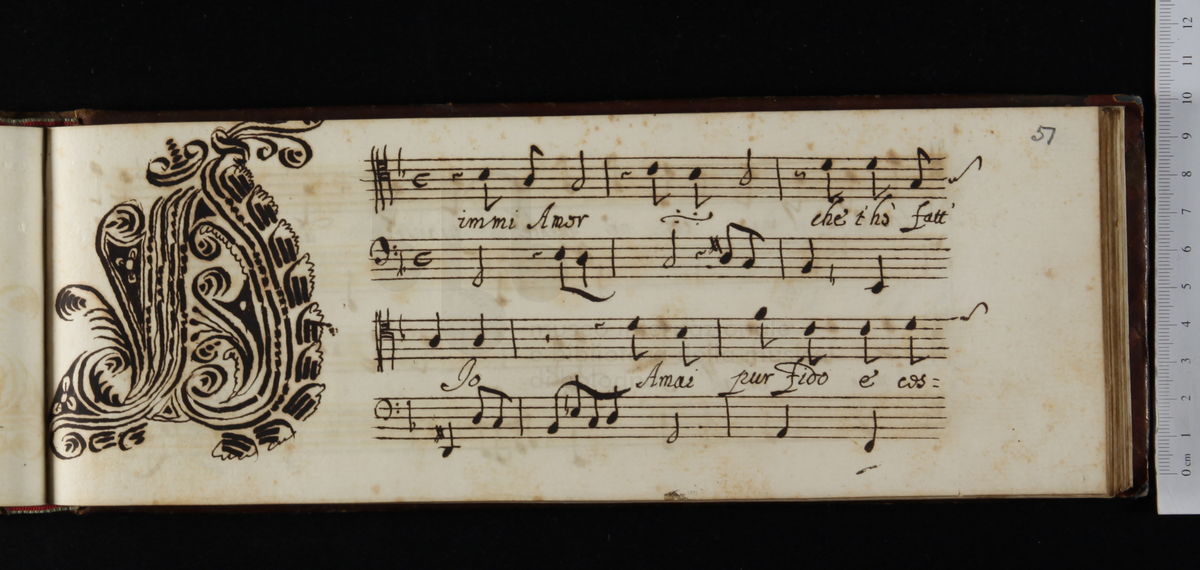 57
D
immi Amor che t'hò fatt'
Jo Amai pur fido e cos=
12
11
10
9
8
7
6
5
4
3
2
1
0 cm